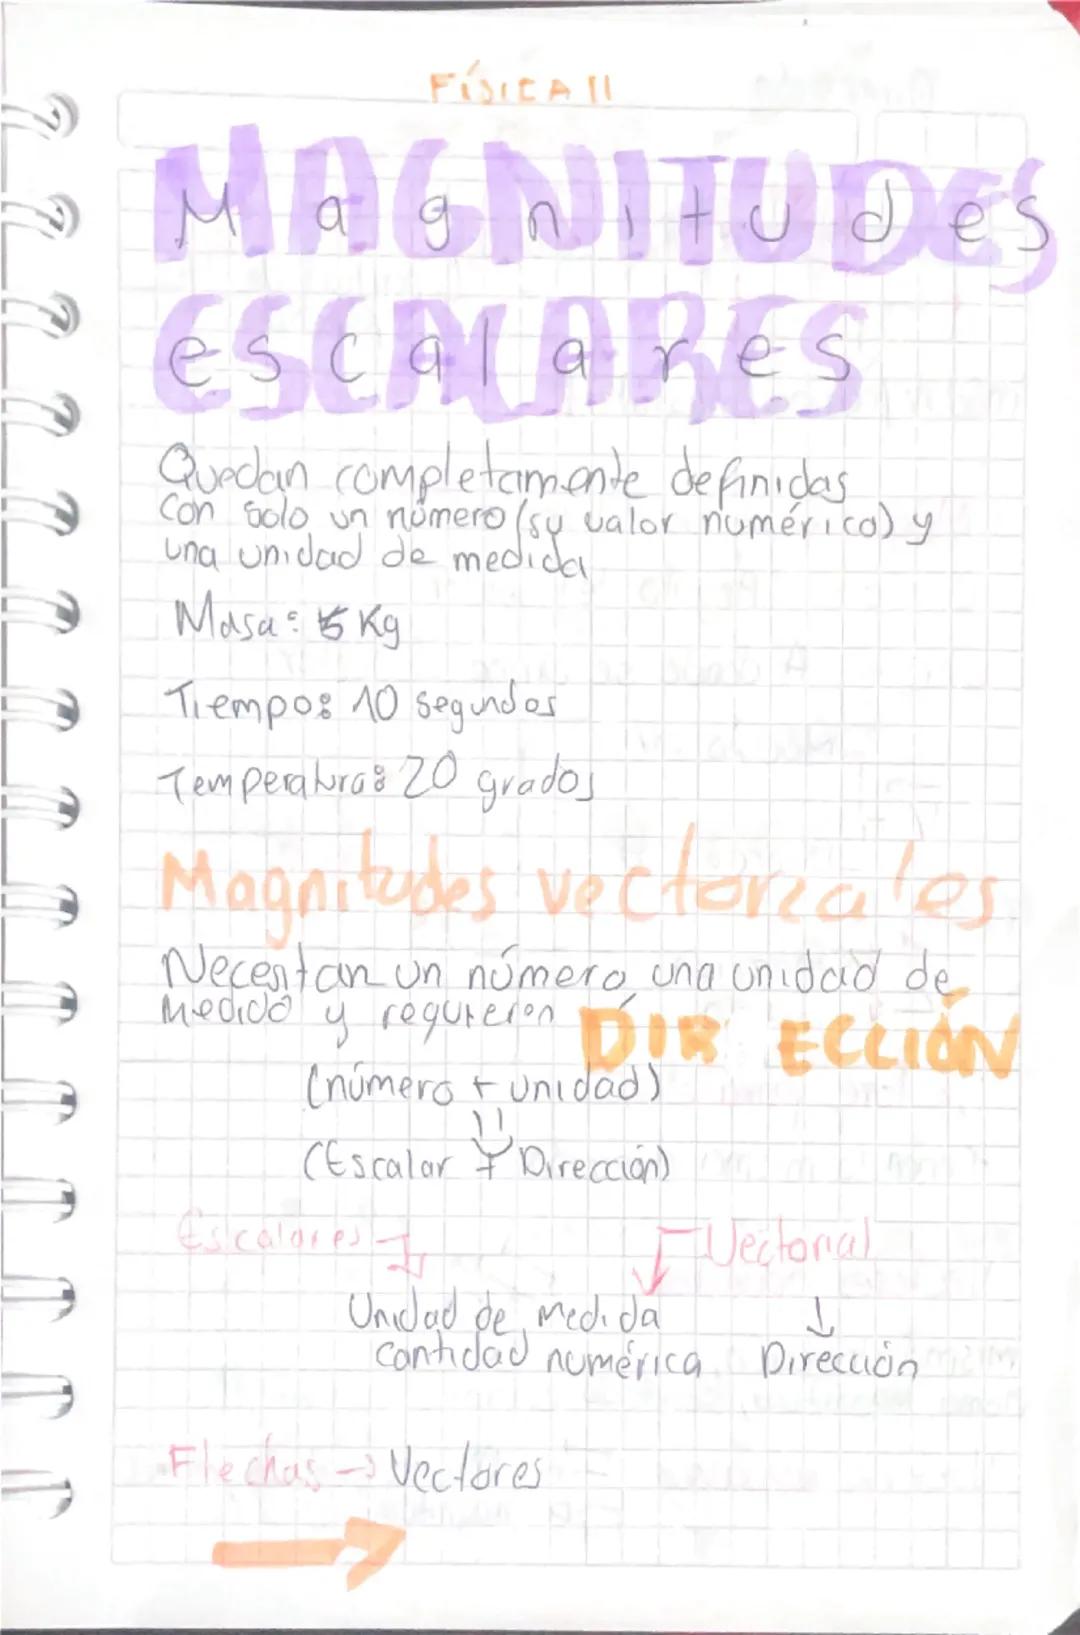 FÍSICA II
MAGNITUDES
Magnitudes
ESCALARES
escalares
Quedan completamente definidas
con solo un número (su valor numérico) y
una unidad de medida
Masa: 5 Kg
Tiempo: 10 segundos
Temperatura: 20 grados
Magnitudes vectoriales
Necesitan un número, una unidad de
medida y requieren DIRECCIÓN
(número + unidad)
(Escalar + Dirección)
Escalares Vectorial
Unidad de medida ↓
cantidad numérica Dirección
Flechas → Vectores